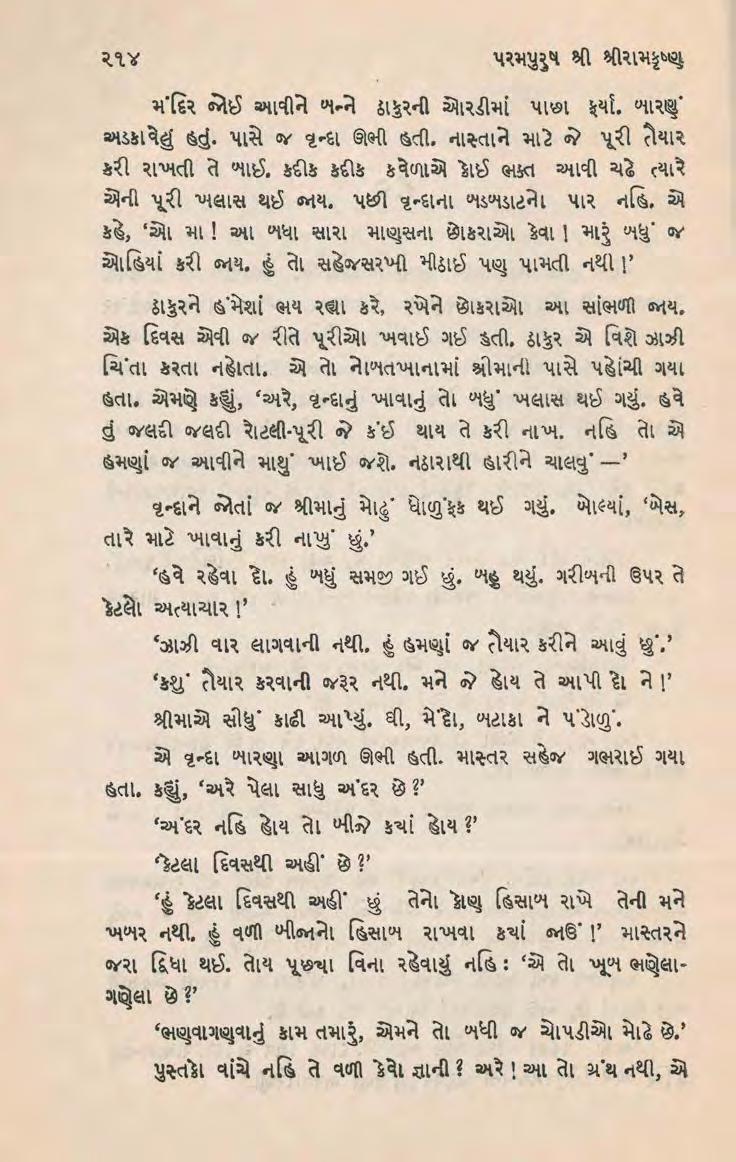 ૨૧૪ પરમપુરુષ શ્રી શ્રીરામકૃષ્ણ
મંદિર જોઈ આવીને બન્ને ઠાકુરની ઓરડીમાં પાછા ફર્યા. બારણું
અડકાવેલું હતું. પાસે જ વૃન્દા ઊભી હતી. નાસ્તાને માટે જે પૂરી તૈયાર
કરી રાખતી તે બાઈ. કદીક કદીક કવેળાએ કોઈ ભક્ત આવી ચઢે ત્યારે
એની પૂરી ખલાસ થઈ જાય. પછી વૃન્દાના બડબડાટનો પાર નહિ. એ
કહે, ‘ઓ મા! આ બધા સારા માણસના છોકરાઓ કેવા! મારું બધું જ
ઓહિયાં કરી જાય. હું તો સહેજસરખી મીઠાઈ પણ પામતી નથી!’
ઠાકુરને હંમેશાં ભય રહ્યા કરે, રખેને છોકરાઓ આ સાંભળી જાય.
એક દિવસ એવી જ રીતે પૂરીઓ ખવાઈ ગઈ હતી. ઠાકુર એ વિશે ઝાઝી
ચિંતા કરતા નહોતા. એ તો નોબતખાનામાં શ્રીમાની પાસે પહોંચી ગયા
હતા. એમણે કહ્યું, ‘અરે, વૃન્દાનું ખાવાનું તો બધું ખલાસ થઈ ગયું. હવે
તું જલદી જલદી રોટલી-પૂરી જે કંઈ થાય તે કરી નાખ. નહિ તો એ
હમણાં જ આવીને માથું ખાઈ જશે. નઠારાથી હારીને ચાલવું —’
વૃન્દાને જોતાં જ શ્રીમાનું મોઢું ધોળુંફક થઈ ગયું. બોલ્યાં, ‘બેસ,
તારે માટે ખાવાનું કરી નાખું છું.’
‘હવે રહેવા દો. હું બધું સમજી ગઈ છું. બહુ થયું. ગરીબની ઉપર તે
કેટલો અત્યાચાર!’
‘ઝાઝી વાર લાગવાની નથી. હું હમણાં જ તૈયાર કરીને આવું છું.’
‘કશું તૈયાર કરવાની જરૂર નથી. મને જે હોય તે આપી દો ને!’
શ્રીમાએ સીધું કાઢી આપ્યું. ઘી, મેંદો, બટાકા ને પંડોળું.
એ વૃન્દા બારણા આગળ ઊભી હતી. માસ્તર સહેજ ગભરાઈ ગયા
હતા. કહ્યું, ‘અરે પેલા સાધુ અંદર છે?’
‘અંદર નહિ હોય તો બીજે કયાં હોય?’
‘કેટલા દિવસથી અહીં છે?’
‘હું કેટલા દિવસથી અહીં છું તેનો કોણ હિસાબ રાખે તેની મને
ખબર નથી. હું વળી બીજાનો હિસાબ રાખવા કયાં જાઉં!’ માસ્તરને
જરા દ્વિધા થઈ. તોય પૂછયા વિના રહેવાયું નહિ: ‘એ તો ખૂબ ભણેલા-
ગણેલા છે?’
‘ભણવાગણવાનું કામ તમારું, એમને તો બધી જ ચોપડીઓ મોઢે છે.’
પુસ્તકો વાંચે નહિ તે વળી કેવો જ્ઞાની? અરે! આ તો ગ્રંથ નથી, એ